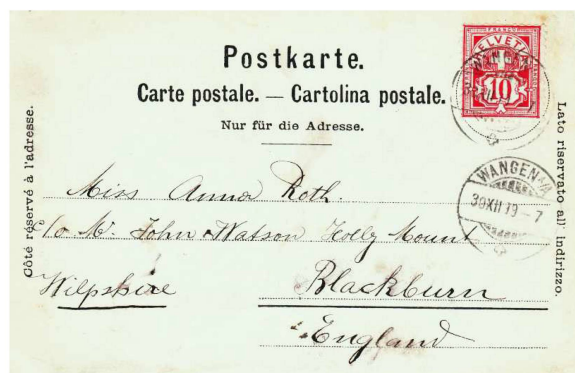 Postkarte.
Carte postale. — Cartolina postale.
Nur für die Adresse.
Côté réservé à l'adresse.
Lato riservato all' indirizzo.
FRANCO
HELVETIA
10
WANGEN
WANGEN
30 XII 99 - 7
Miss Anna Roth.
c/o Mr. John Watson Holly Mount
Wilpshire Blackburn
England